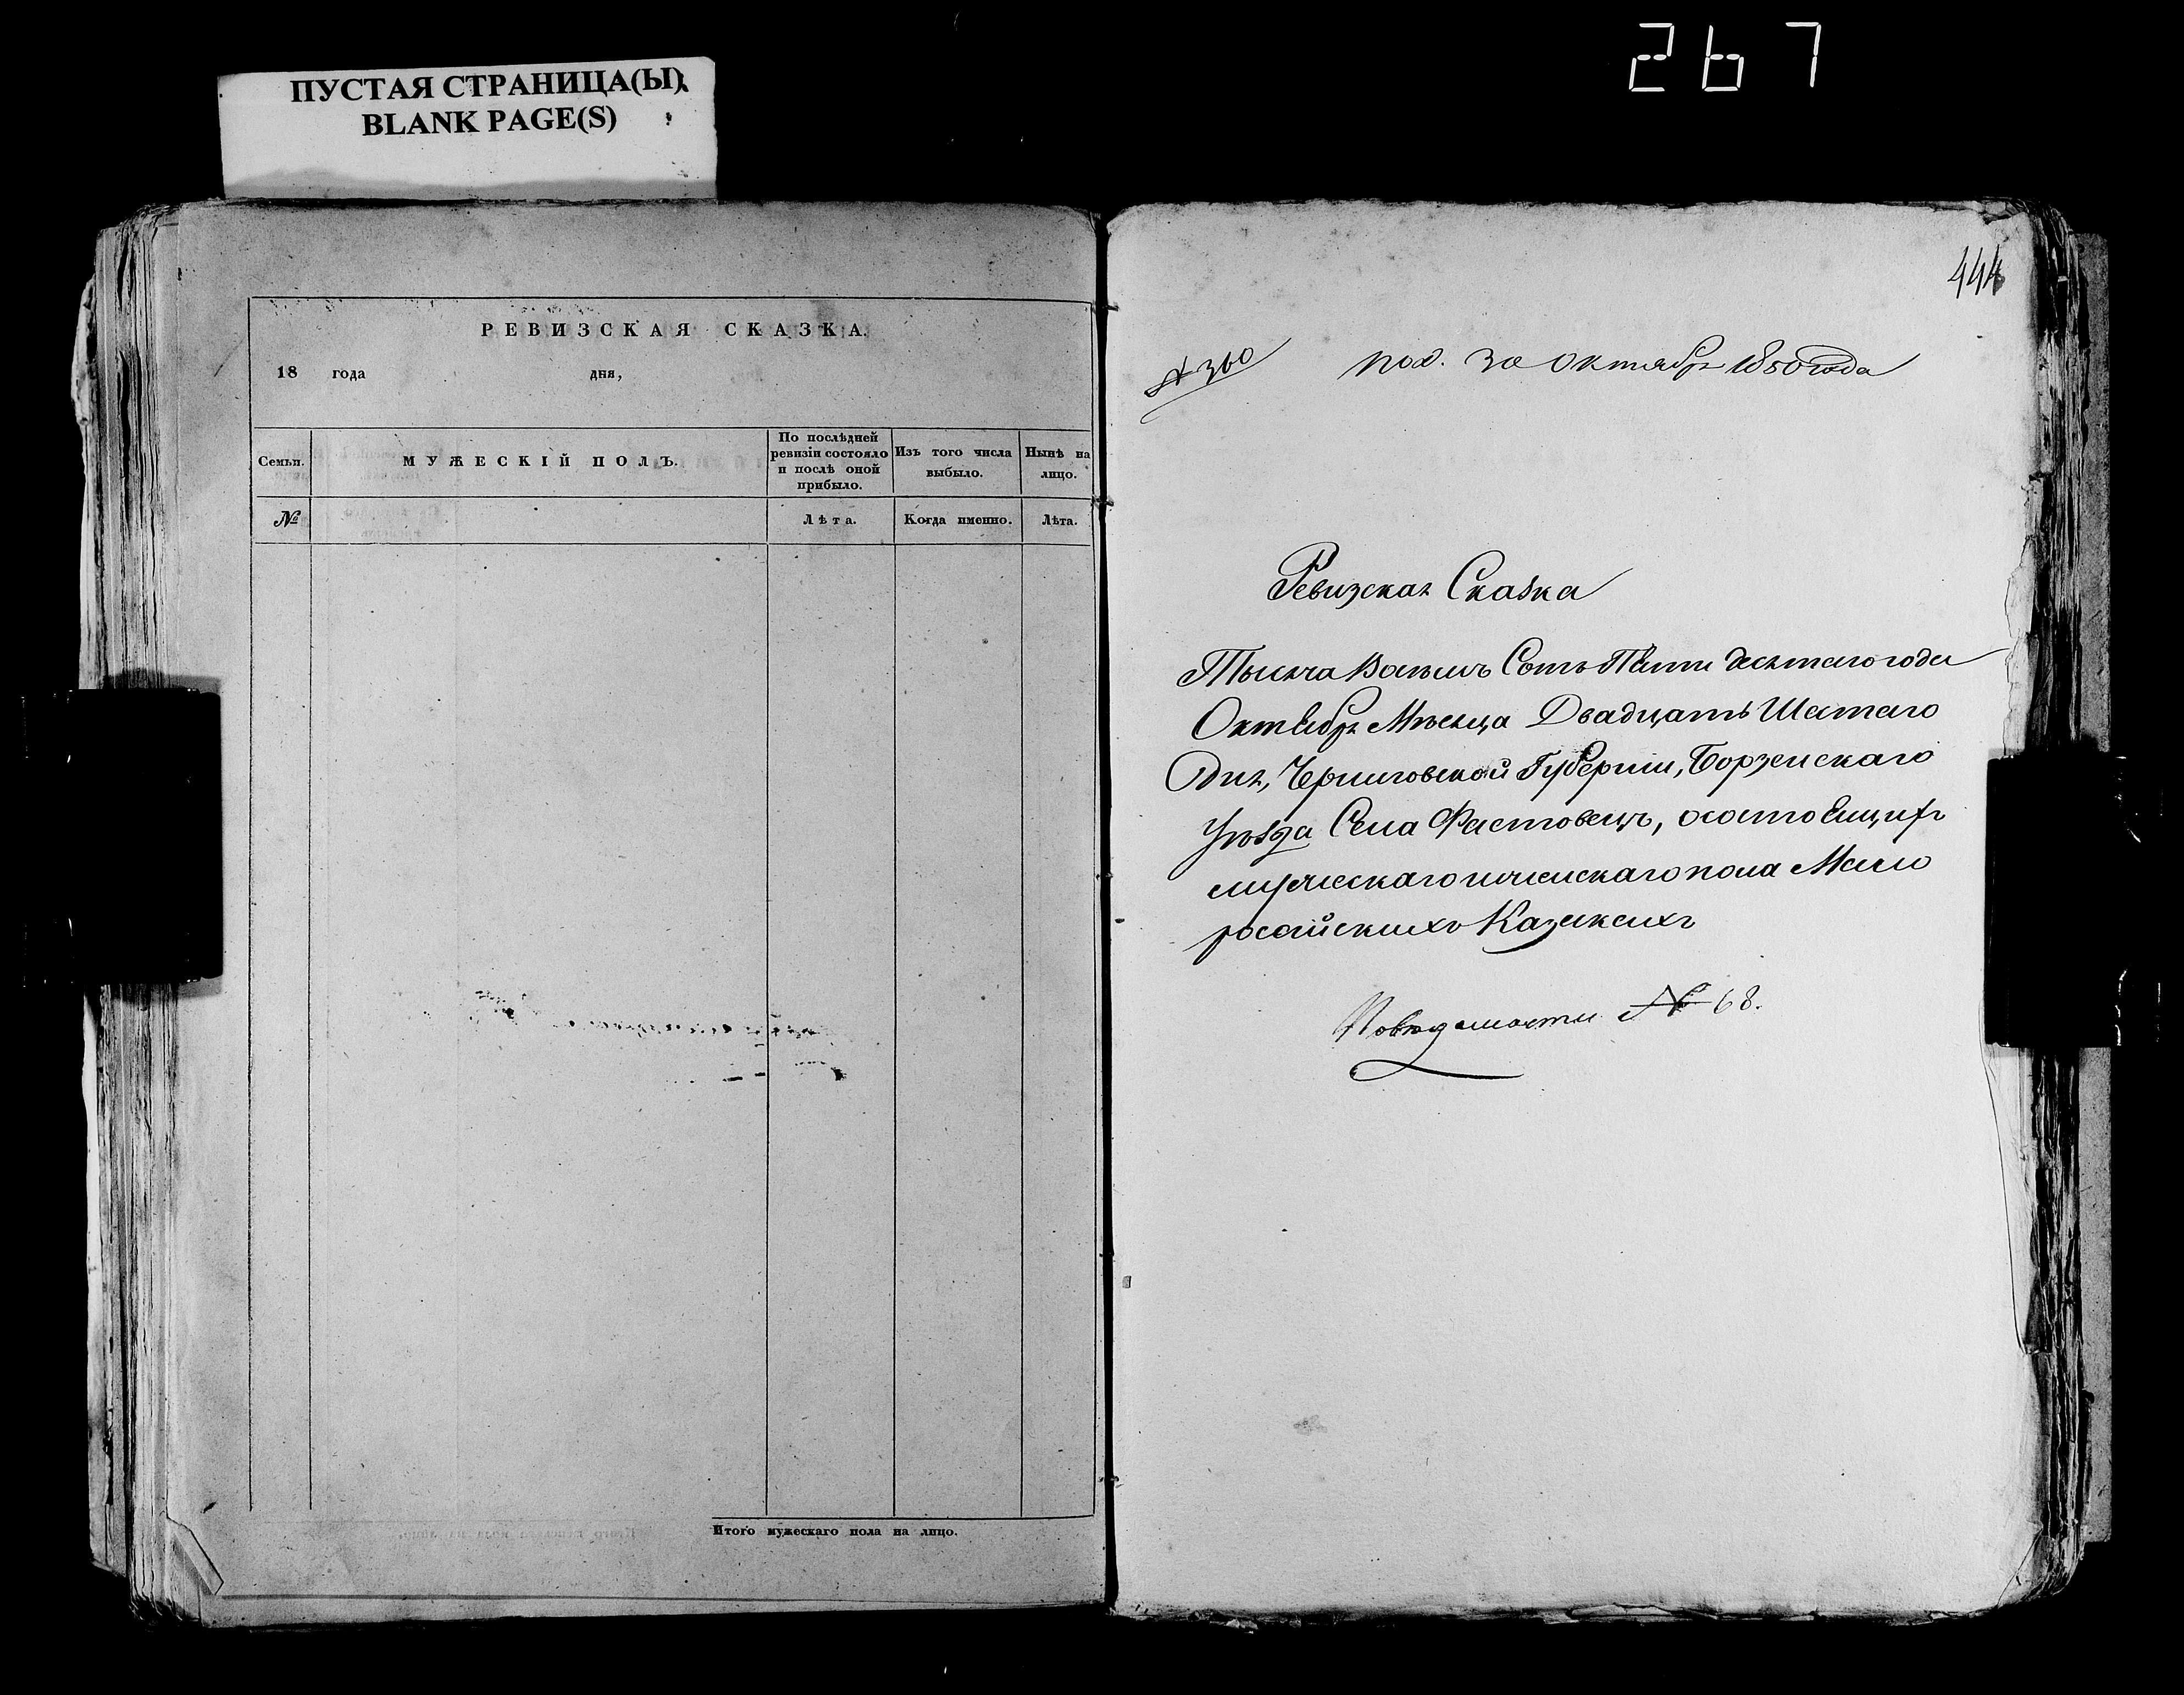 267
ПУСТАЯ СТРАНИЦА(Ы)
BLANK PAGE(S)
РЕВИЗСКАЯ СКАЗКА.
18 года дня,
Семьи.
МУЖЕСКІЙ ПОЛЪ.
По послѣдней
ревизіи состояло
и послѣ оной
прибыло.
Изъ того числа
выбыло.
Нынѣ на
лицо.
№
Лѣта.
Когда именно.
Лѣта.
Итого мужескаго пола на лицо.
444
№ 360 пол. 30 Октября 1850 года
Ревизская Сказка
Тысяча Восемь Сотъ Пяти десятаго года
Октября Мѣсяца Двадцать Шестаго
Дня, Черниговской Губерніи, Борзенскаго
Уѣзда Села Фастовецъ, осостоящихъ
мужескаго и женскаго пола Мало
россійскихъ Казакахъ
По вѣдомости № 68.